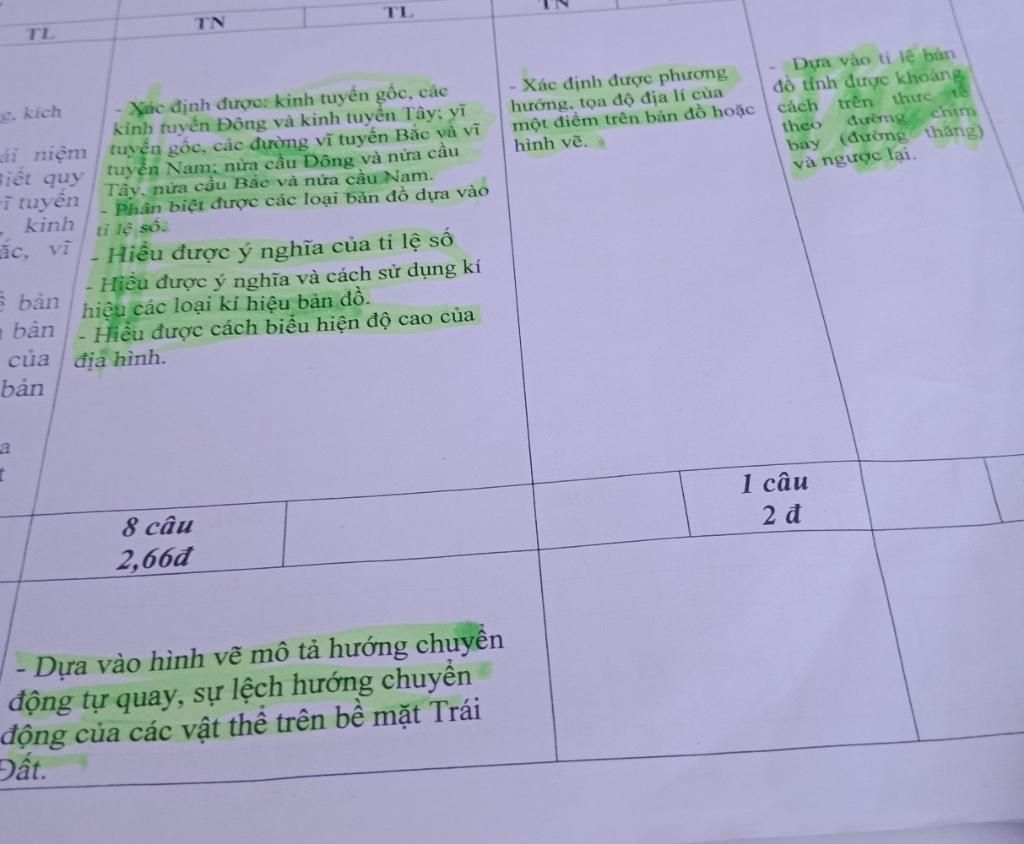 TL
TN
TL
TN
g, kích
ái niệm
iết quy
ĩ tuyến
, kinh
ắc, vĩ
bản
bản
của
bản
a
t
- Xác định được: kinh tuyến gốc, các
kinh tuyến Đông và kinh tuyến Tây; vĩ
tuyến gốc, các đường vĩ tuyến Bắc và vĩ
tuyến Nam; nửa cầu Đông và nửa cầu
Tây, nửa cầu Bắc và nửa cầu Nam.
- Phân biệt được các loại bản đồ dựa vào
tỉ lệ số.
- Hiểu được ý nghĩa của tỉ lệ số
- Hiểu được ý nghĩa và cách sử dụng kí
hiệu các loại kí hiệu bản đồ.
- Hiểu được cách biểu hiện độ cao của
địa hình.
- Xác định được phương
hướng, tọa độ địa lí của
một điểm trên bản đồ hoặc
hình vẽ.
- Dựa vào tỉ lệ bản
đồ tính được khoảng
cách trên thực tế
theo đường chim
bay (đường thẳng)
và ngược lại.
8 câu
2,66đ
1 câu
2 đ
- Dựa vào hình vẽ mô tả hướng chuyển
động tự quay, sự lệch hướng chuyển
động của các vật thể trên bề mặt Trái
Đất.